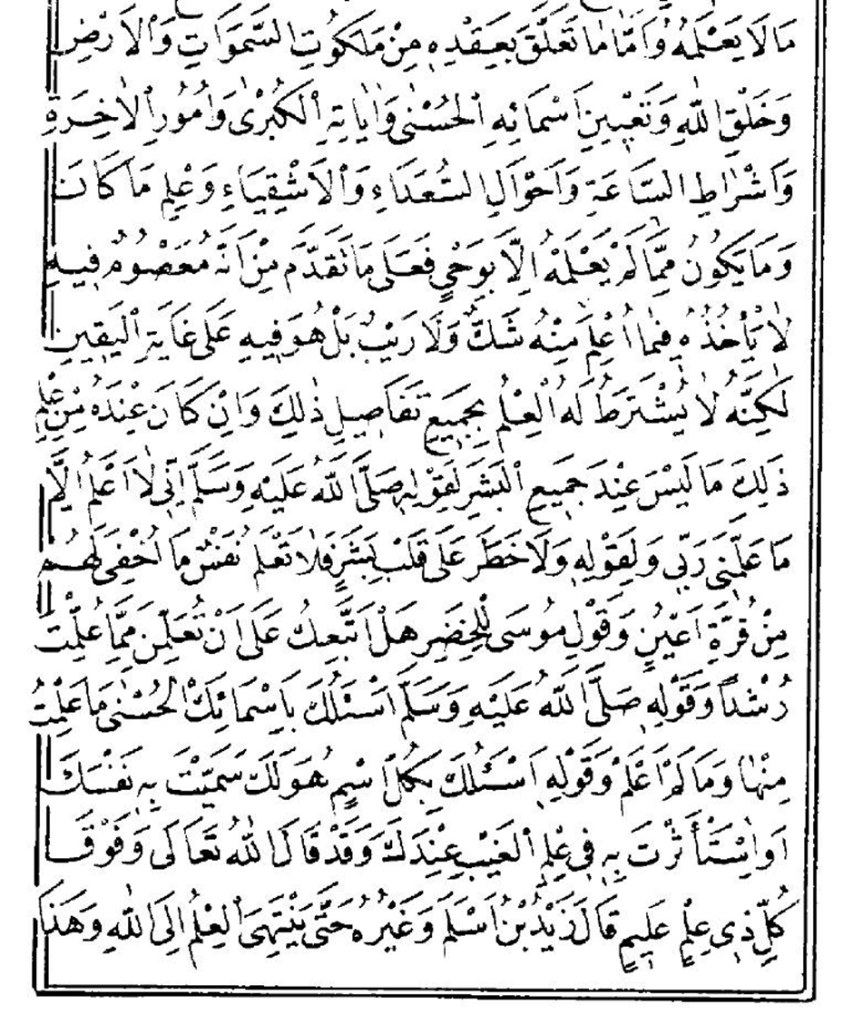 مَا لَا يَعْلَمُهُ وَأَمَّا مَا تَعَلَّقَ بِعَقْدِهِ مِنْ مَلَكُوتِ السَّمَوَاتِ وَالْاَرْضِ
وَخَلْقِ اللهِ وَتَعْيِينِ اَسْمَائِهِ الْحُسْنٰى وَاٰيَاتِهِ الْكُبْرٰى وَاُمُورِ الْاٰخِرَةِ
وَاَشْرَاطِ السَّاعَةِ وَاَحْوَالِ السُّعَدَاءِ وَالْاَشْقِيَاءِ وَعِلْمِ مَا كَانَ
وَمَا يَكُونُ مِمَّا لَمْ يَعْلَمْهُ اِلَّا بِوَحْيٍ فَعَلَى مَا تَقَدَّمَ مِنْ اَنَّهُ مَعْصُومٌ فِيهِ
لَا يَأْخُذُهُ فِيمَا اُعْلِمَ مِنْهُ شَكٌّ وَلَا رَيْبٌ بَلْ هُوَ فِيهِ عَلَى غَايَةِ الْيَقِينِ
لٰكِنَّهُ لَا يُشْتَرَطُ لَهُ الْعِلْمُ بِجَمِيعِ تَفَاصِيلِ ذٰلِكَ وَاِنْ كَانَ عِنْدَهُ مِنْ عِلْمِ
ذٰلِكَ مَا لَيْسَ عِنْدَ جَمِيعِ الْبَشَرِ لِقَوْلِهِ صَلَّى اللهُ عَلَيْهِ وَسَلَّمَ اِنِّى لَا اَعْلَمُ اِلَّا
مَا عَلَّمَنِى رَبِّى وَلِقَوْلِهِ وَلَا خَطَرَ عَلَى قَلْبِ بَشَرٍ فَلَا تَعْلَمُ نَفْسٌ مَا اُخْفِىَ لَهُمْ
مِنْ قُرَّةِ اَعْيُنٍ وَقَوْلِ مُوسَى لِلْخَضِرِ هَلْ اَتَّبِعُكَ عَلَى اَنْ تُعَلِّمَنِ مِمَّا عُلِّمْتَ
رُشْدًا وَقَوْلِهِ صَلَّى اللهُ عَلَيْهِ وَسَلَّمَ اَسْئَلُكَ بِاَسْمَائِكَ الْحُسْنٰى مَا عَلِمْتُ
مِنْهَا وَمَا لَمْ اَعْلَمْ وَقَوْلِهِ اَسْئَلُكَ بِكُلِّ اسْمٍ هُوَ لَكَ سَمَّيْتَ بِهِ نَفْسَكَ
اَوِ اسْتَأْثَرْتَ بِهِ فِى عِلْمِ الْغَيْبِ عِنْدَكَ وَقَدْ قَالَ اللهُ تَعَالَى وَفَوْقَ
كُلِّ ذِى عِلْمٍ عَلِيمٌ قَالَ زَيْدُ بْنُ اَسْلَمَ وَغَيْرُهُ حَتَّى يَنْتَهِىَ الْعِلْمُ اِلَى اللهِ وَهَذَا